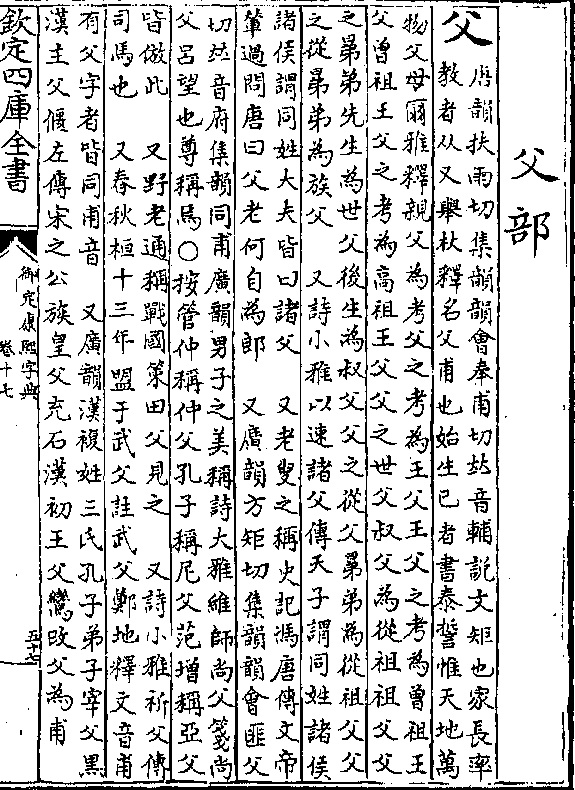 父部
父
唐韻扶雨切集韻韻會奉甫切𠀤音輔說文矩也家長率
教者从又舉杖釋名父甫也始生已者書泰誓惟天地萬
物父母爾雅釋親父為考父之考為王父王父之考為曾祖王
父曾祖王父之考為高祖王父父之世父叔父為從祖祖父父
之晜弟先生為世父後生為叔父父之從父晜弟為從祖父父
之從晜弟為族父 又詩小雅以速諸父傳天子謂同姓諸侯
諸侯謂同姓大夫皆曰諸父 又老叟之稱史記馮唐傳文帝
輦過問唐曰父老何自為郎 又廣韻方矩切集韻韻會匪父
切𠀤音府集韻同甫廣韻男子之美稱詩大雅維師尚父箋尚
父呂望也尊稱焉〇按管仲稱仲父孔子稱尼父范增稱亞父
皆倣此 又野老通稱戰國策田父見之 又詩小雅祈父傳
司馬也 又春秋桓十三年盟于武父註武父鄭地釋文音甫
有父字者皆同甫音 又廣韻漢複姓三氏孔子弟子宰父黑
漢主父偃左傳宋之公族皇父充石漢初王父鸞改父為甫
欽定四庫全書
御定康熙字典
卷十七
五十七